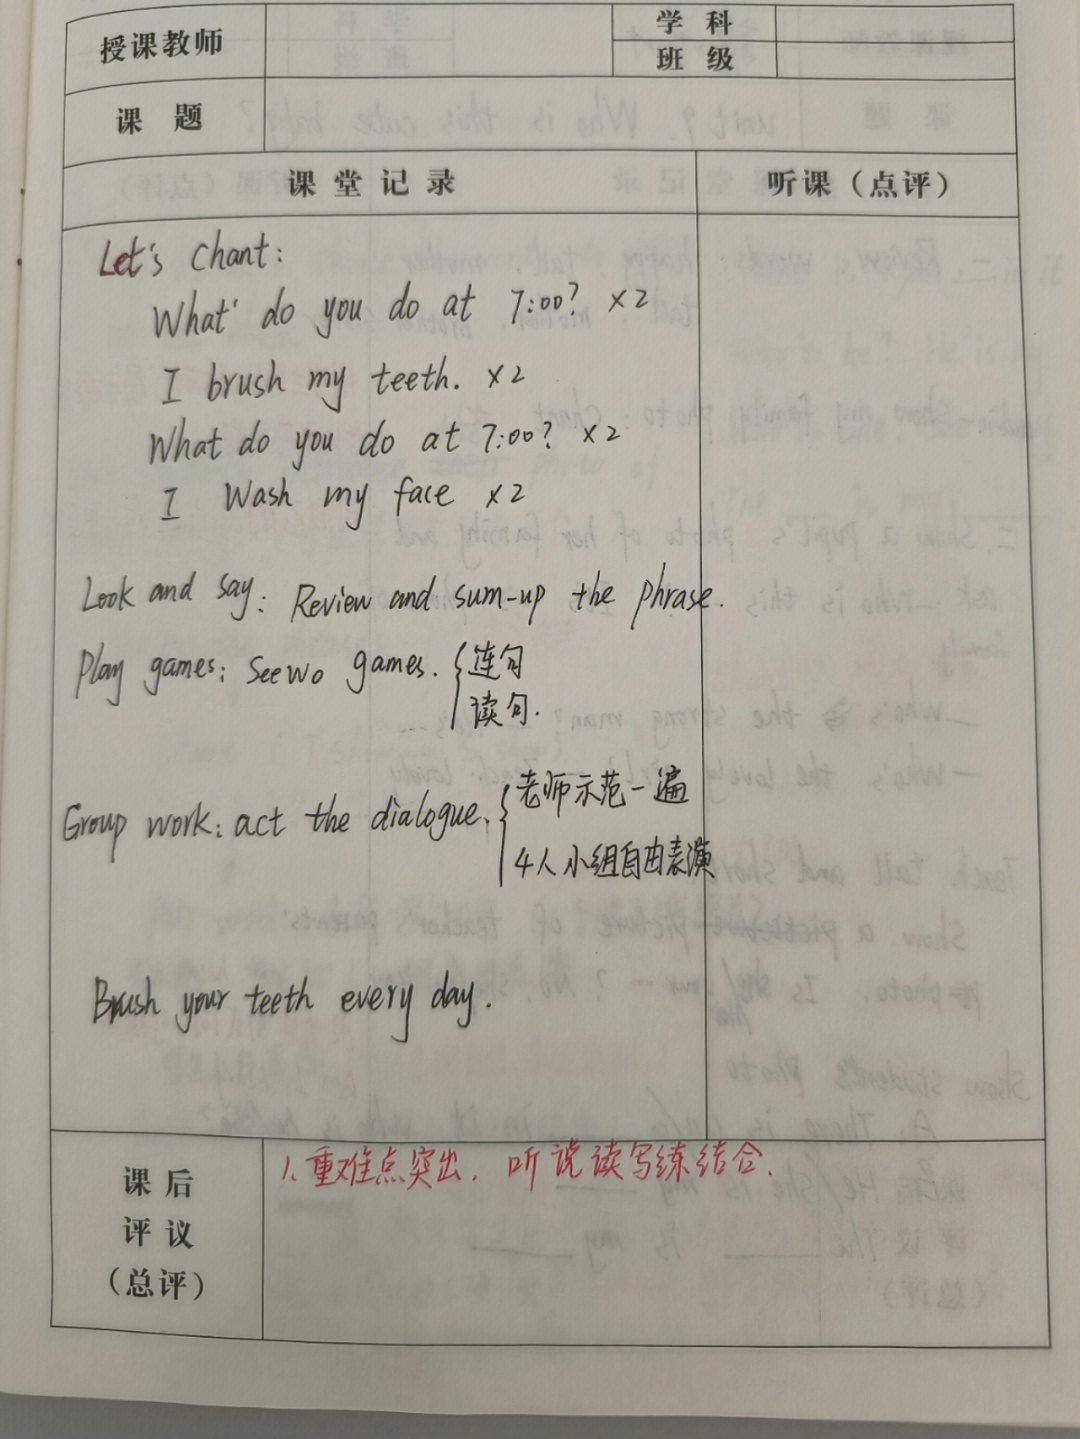 授课教师
学科
班级
课题
课堂记录
听课（点评）
Let's chant:
What' do you do at 7:00? ×2
I brush my teeth. ×2
What do you do at 7:00? ×2
I Wash my face ×2
Look and say: Review and sum-up the phrase.
Play games: Seewo games. { 连句
读句.
Group work: act the dialogue. { 老师示范一遍
4人小组自由表演
Brush your teeth every day.
课后
评议
（总评）
1、重难点突出，听说读写练结合.